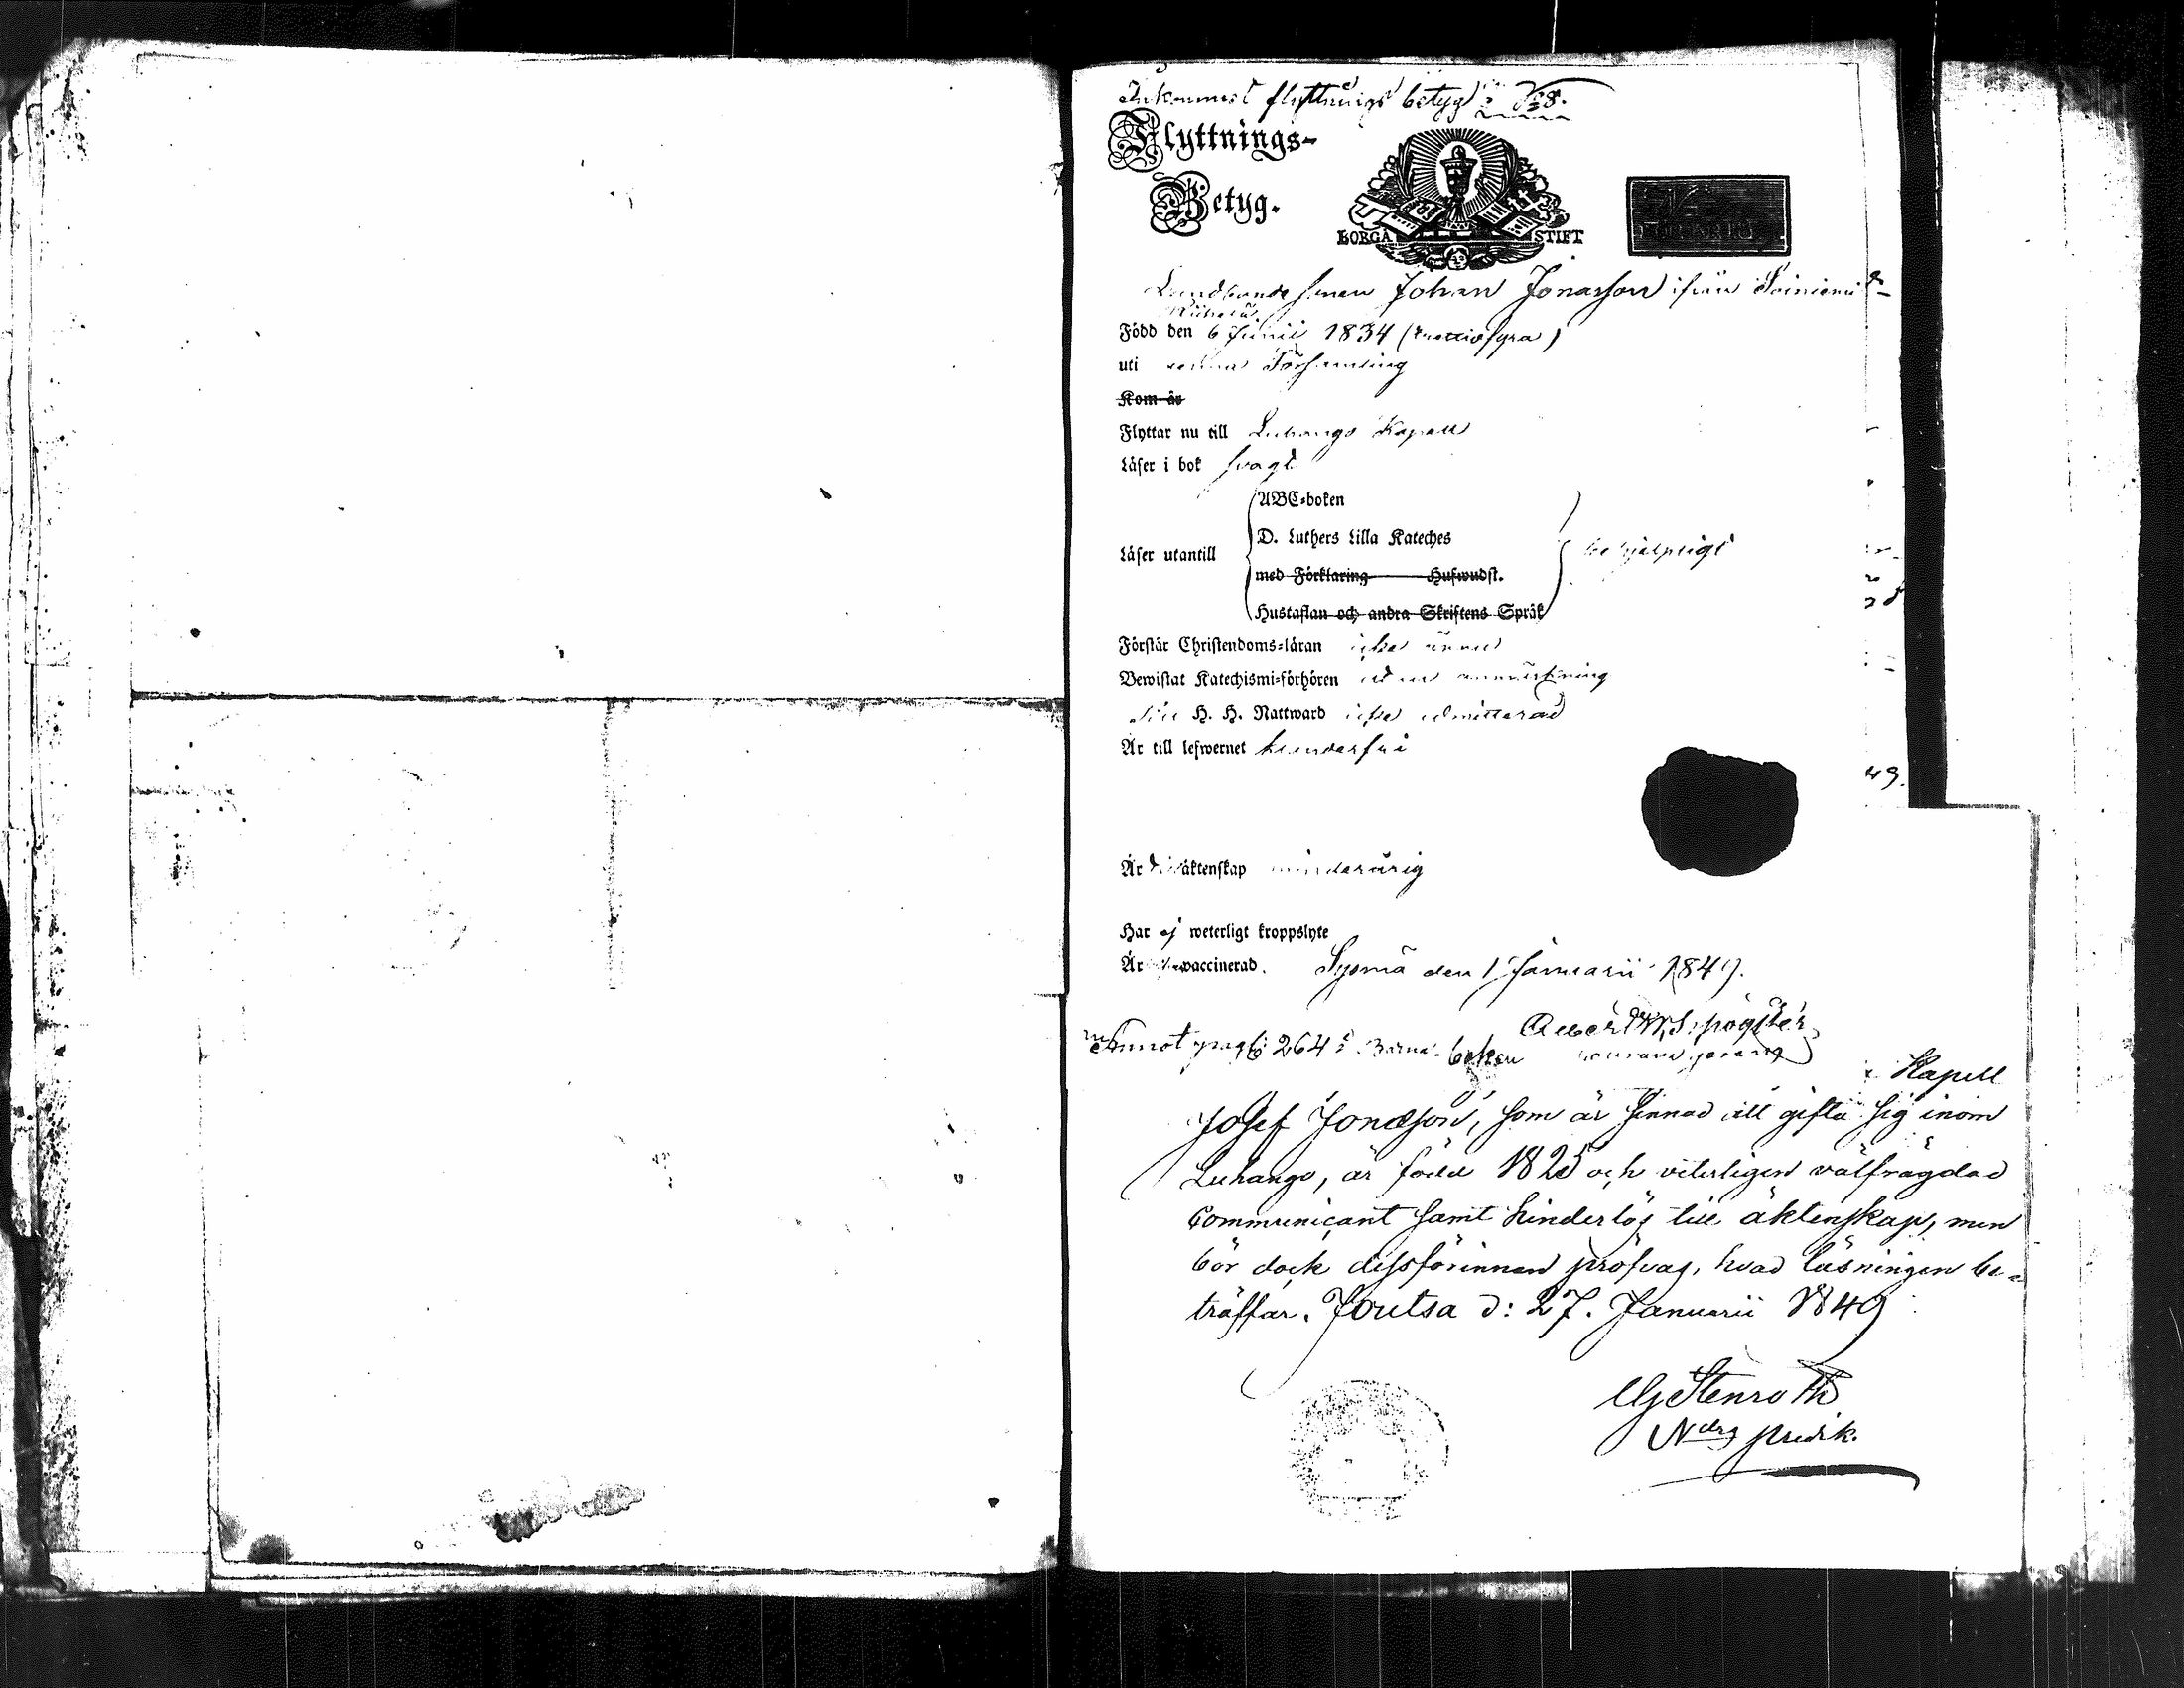 Inkommet flyttnings betyg N:o 8.
Flyttnings-
Betyg.
BORGÅ STIFT
Landbonde sonen Johan Jonasson ifrån Soiniemi
Född den 6 Junii 1834 (trettiofyra)
uti denna Församling
Kom år
Flyttar nu till Luhango Kapell
Läser i bok svagt
ABC-boken
D. Luthers Lilla Kateches
Läser utantill
behjelpligt
med Förklaring Hufwudst.
Hustaflan och andra Skriftens Språk
Förstår Christendoms-läran icke ännu
Bewistat Katechismi-förhören utan anmärkning
Till H. H. Nattward icke admitterad
Är till lefwernet klanderfri
49.
Är äktenskap minderårig
Har ej weterligt kroppslyte
Är waccinerad. Sysmä den 1 Januarii 1849.
Annot pag 264 i Barnaboken
Kapell
Josef Jonasson, som är sinnad att gifta sig inom
Luhango, är född 1825 och veterligen välfrägdad
Communicant samt hinderlös till äktenskap, men
bör dock dessförinnan pröfvas, hvad läsningen be-
träffar. Joutsa d: 27. Januarii 1849
Stenroth
Ndrs predik.